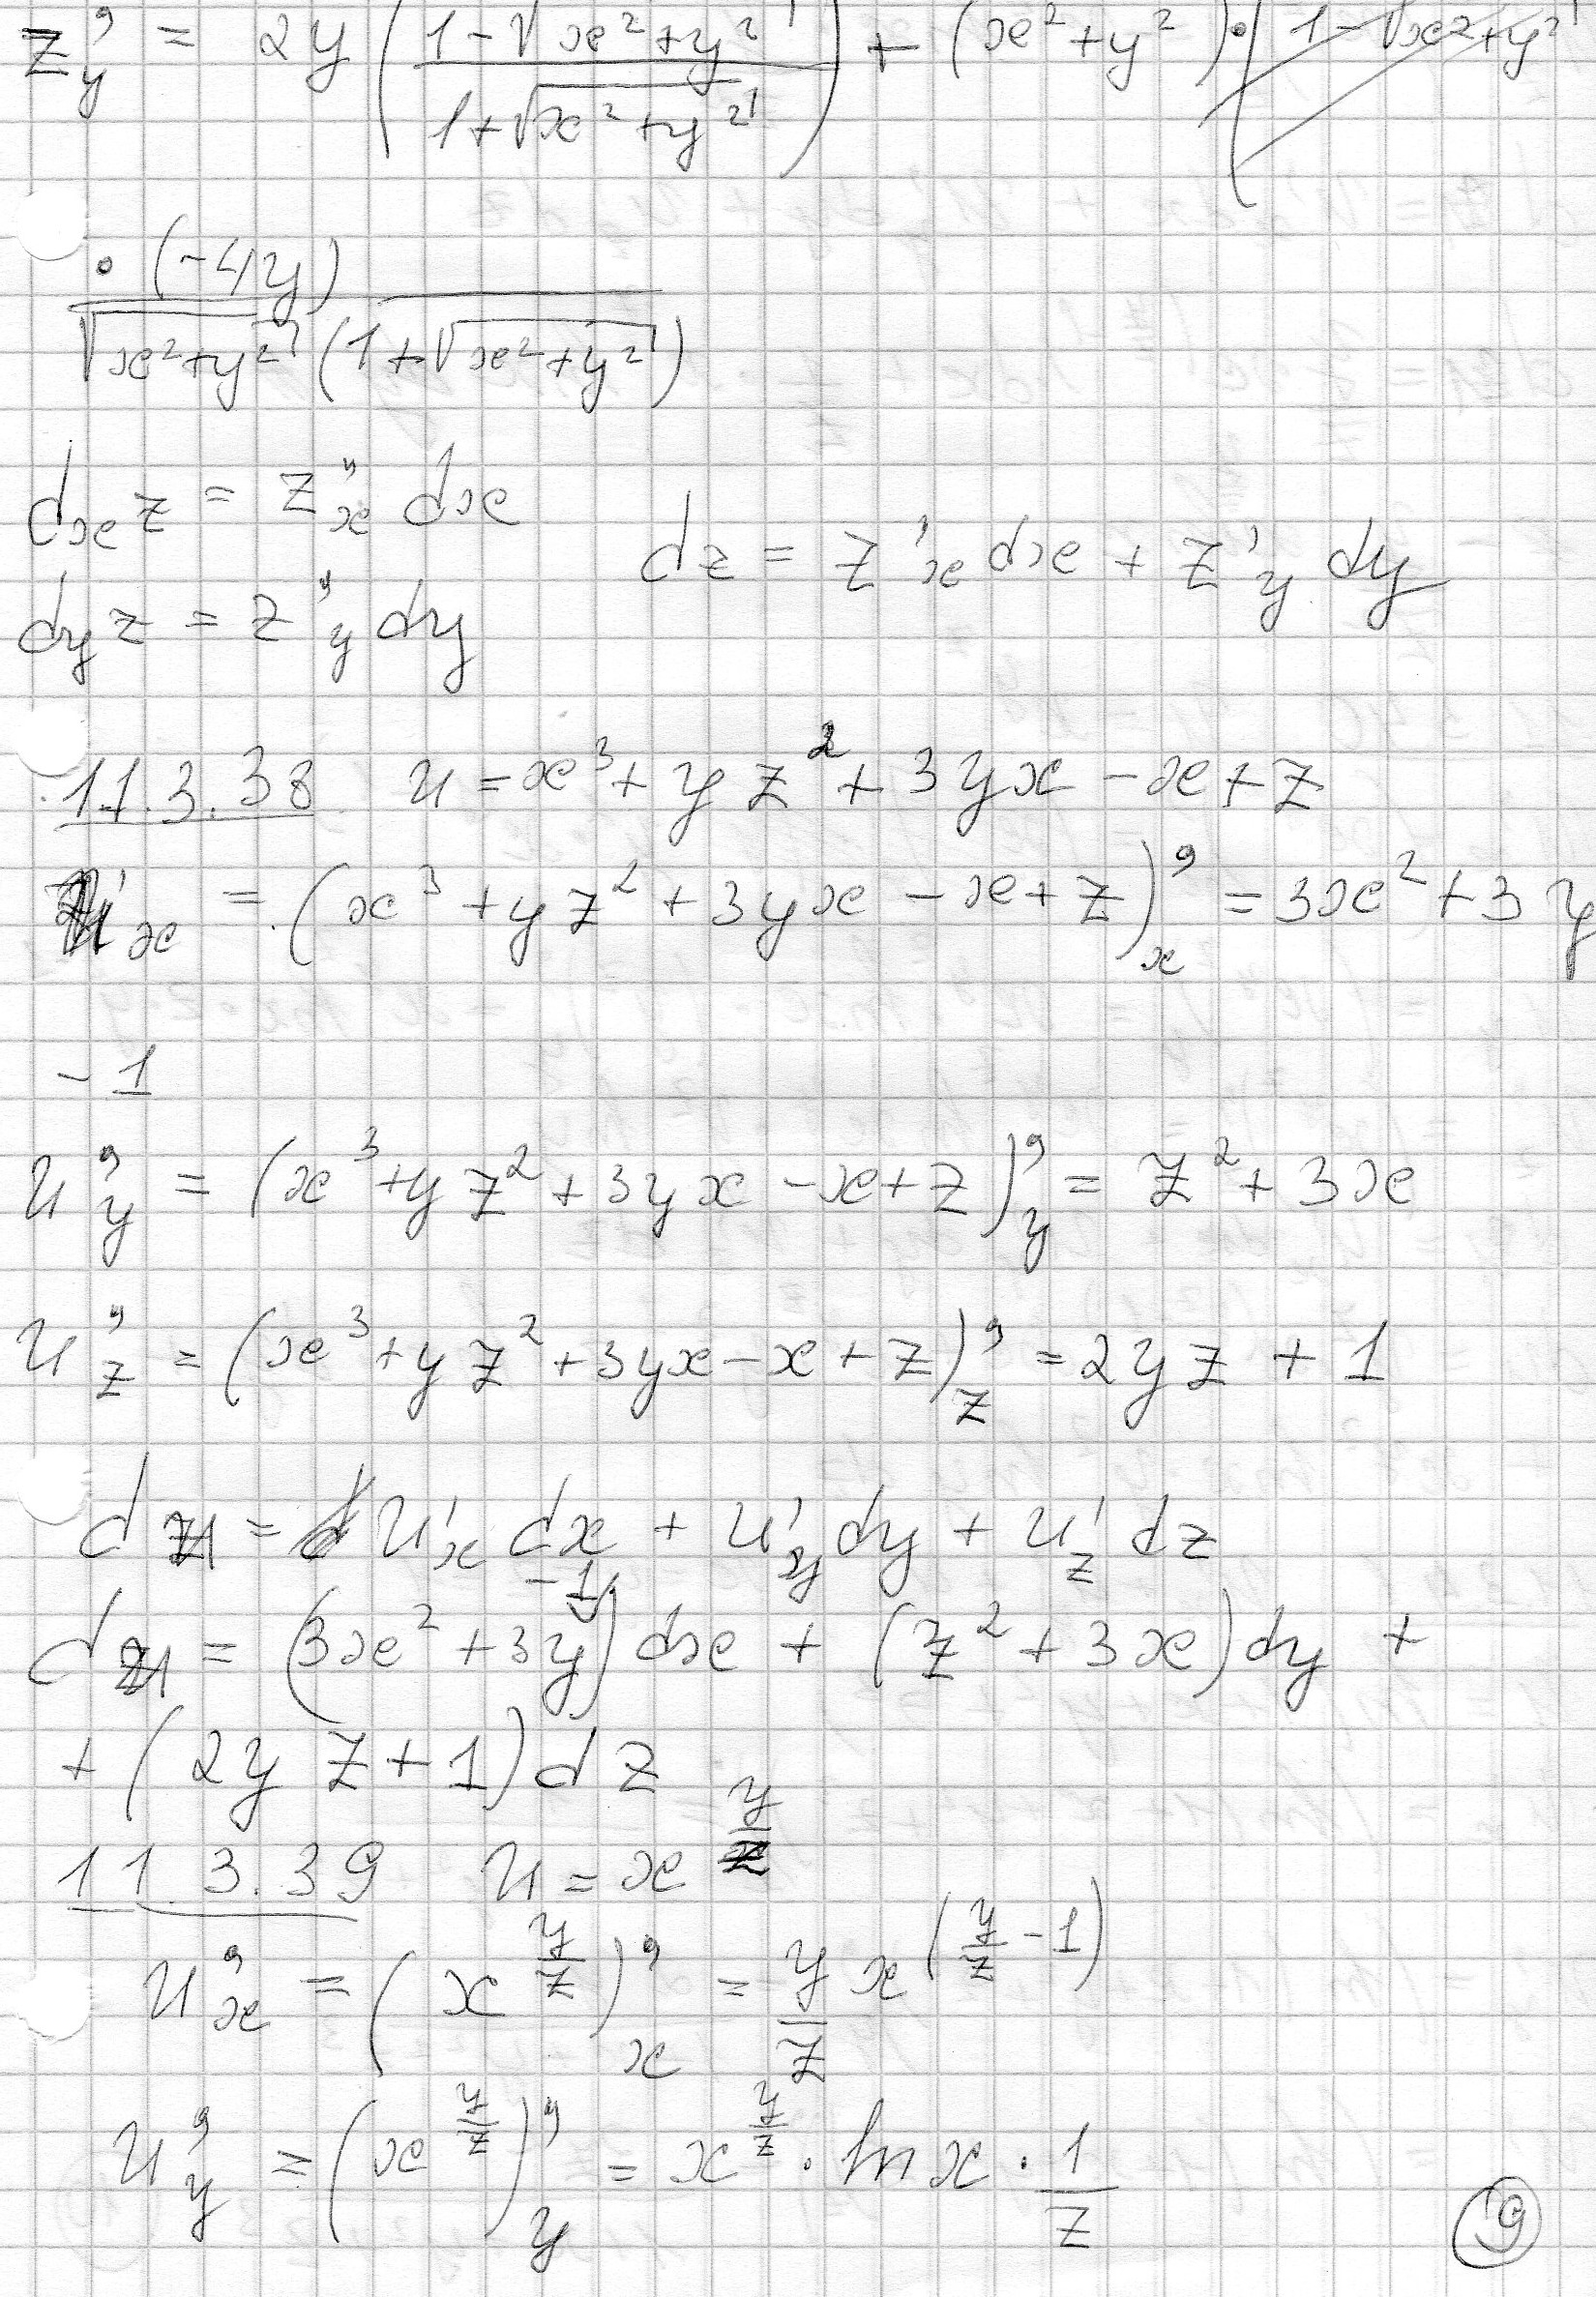 z'_y = 2y ( (1-√(x²+y²)) / (1+√(x²+y²)) ) + (x²+y²) ·
· (-4y) / ( √(x²+y²) (1+√(x²+y²)) )
d_x z = z'_x dx
dz = z'_x dx + z'_y dy
d_y z = z'_y dy
11.3.38 u = x³ + yz² + 3yx - x + z
u'_x = (x³ + yz² + 3yx - x + z)'_x = 3x² + 3y
- 1
u'_y = (x³ + yz² + 3yx - x + z)'_y = z² + 3x
u'_z = (x³ + yz² + 3yx - x + z)'_z = 2yz + 1
du = u'_x dx + u'_y dy + u'_z dz
du = (3x² + 3y - 1) dx + (z² + 3x) dy +
+ (2yz + 1) dz
11.3.39 u = x^(y/z)
u'_x = (x^(y/z))'_x = y/z x^(y/z - 1)
u'_y = (x^(y/z))'_y = x^(y/z) · ln x · 1/z